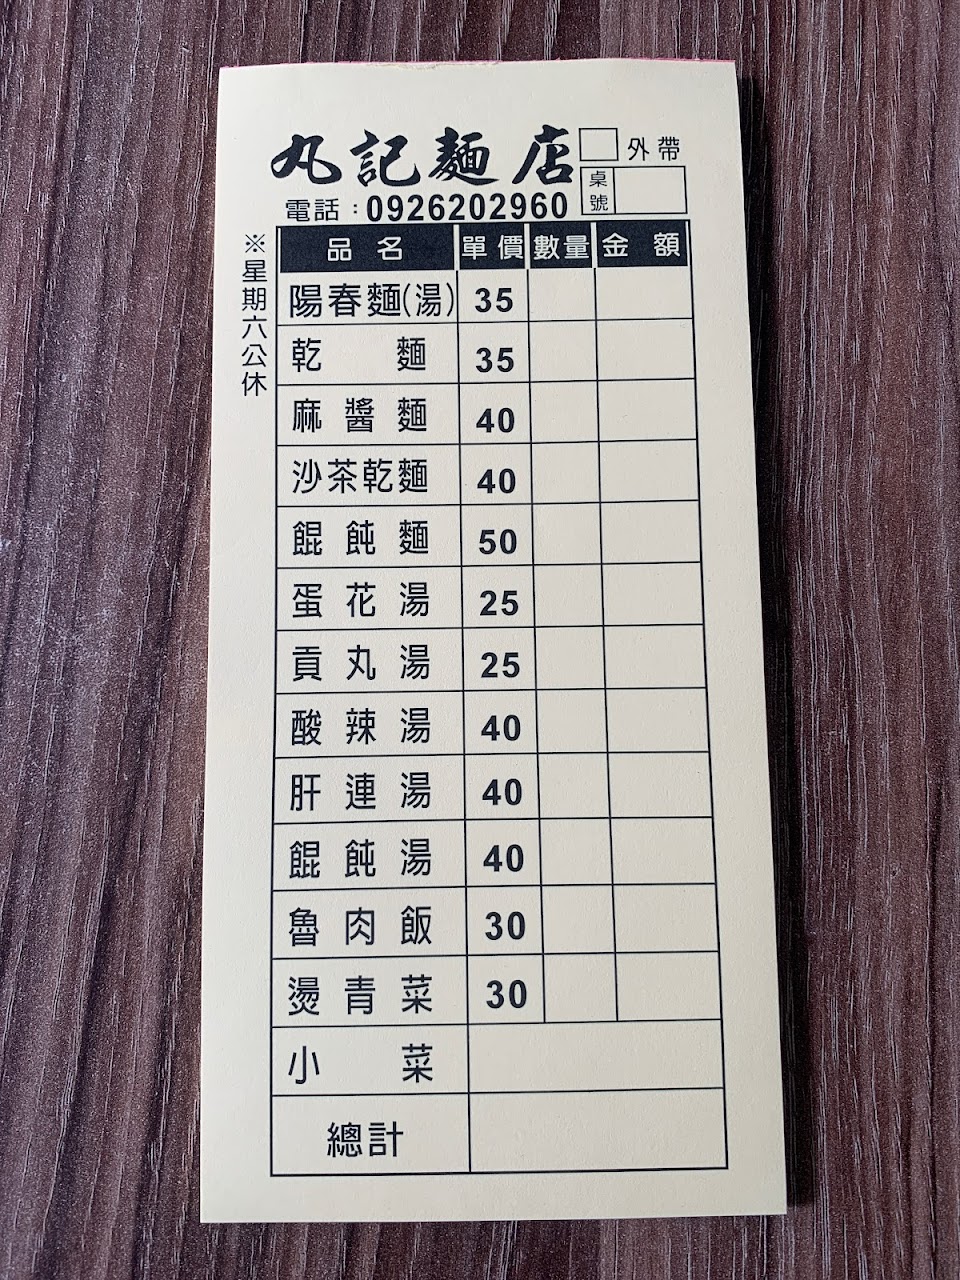 丸記麵店
外帶
電話：0926202960
桌號
※星期六公休
品名 單價 數量 金額
陽春麵(湯) 35
乾麵 35
麻醬麵 40
沙茶乾麵 40
餛飩麵 50
蛋花湯 25
貢丸湯 25
酸辣湯 40
肝連湯 40
餛飩湯 40
魯肉飯 30
燙青菜 30
小菜
總計